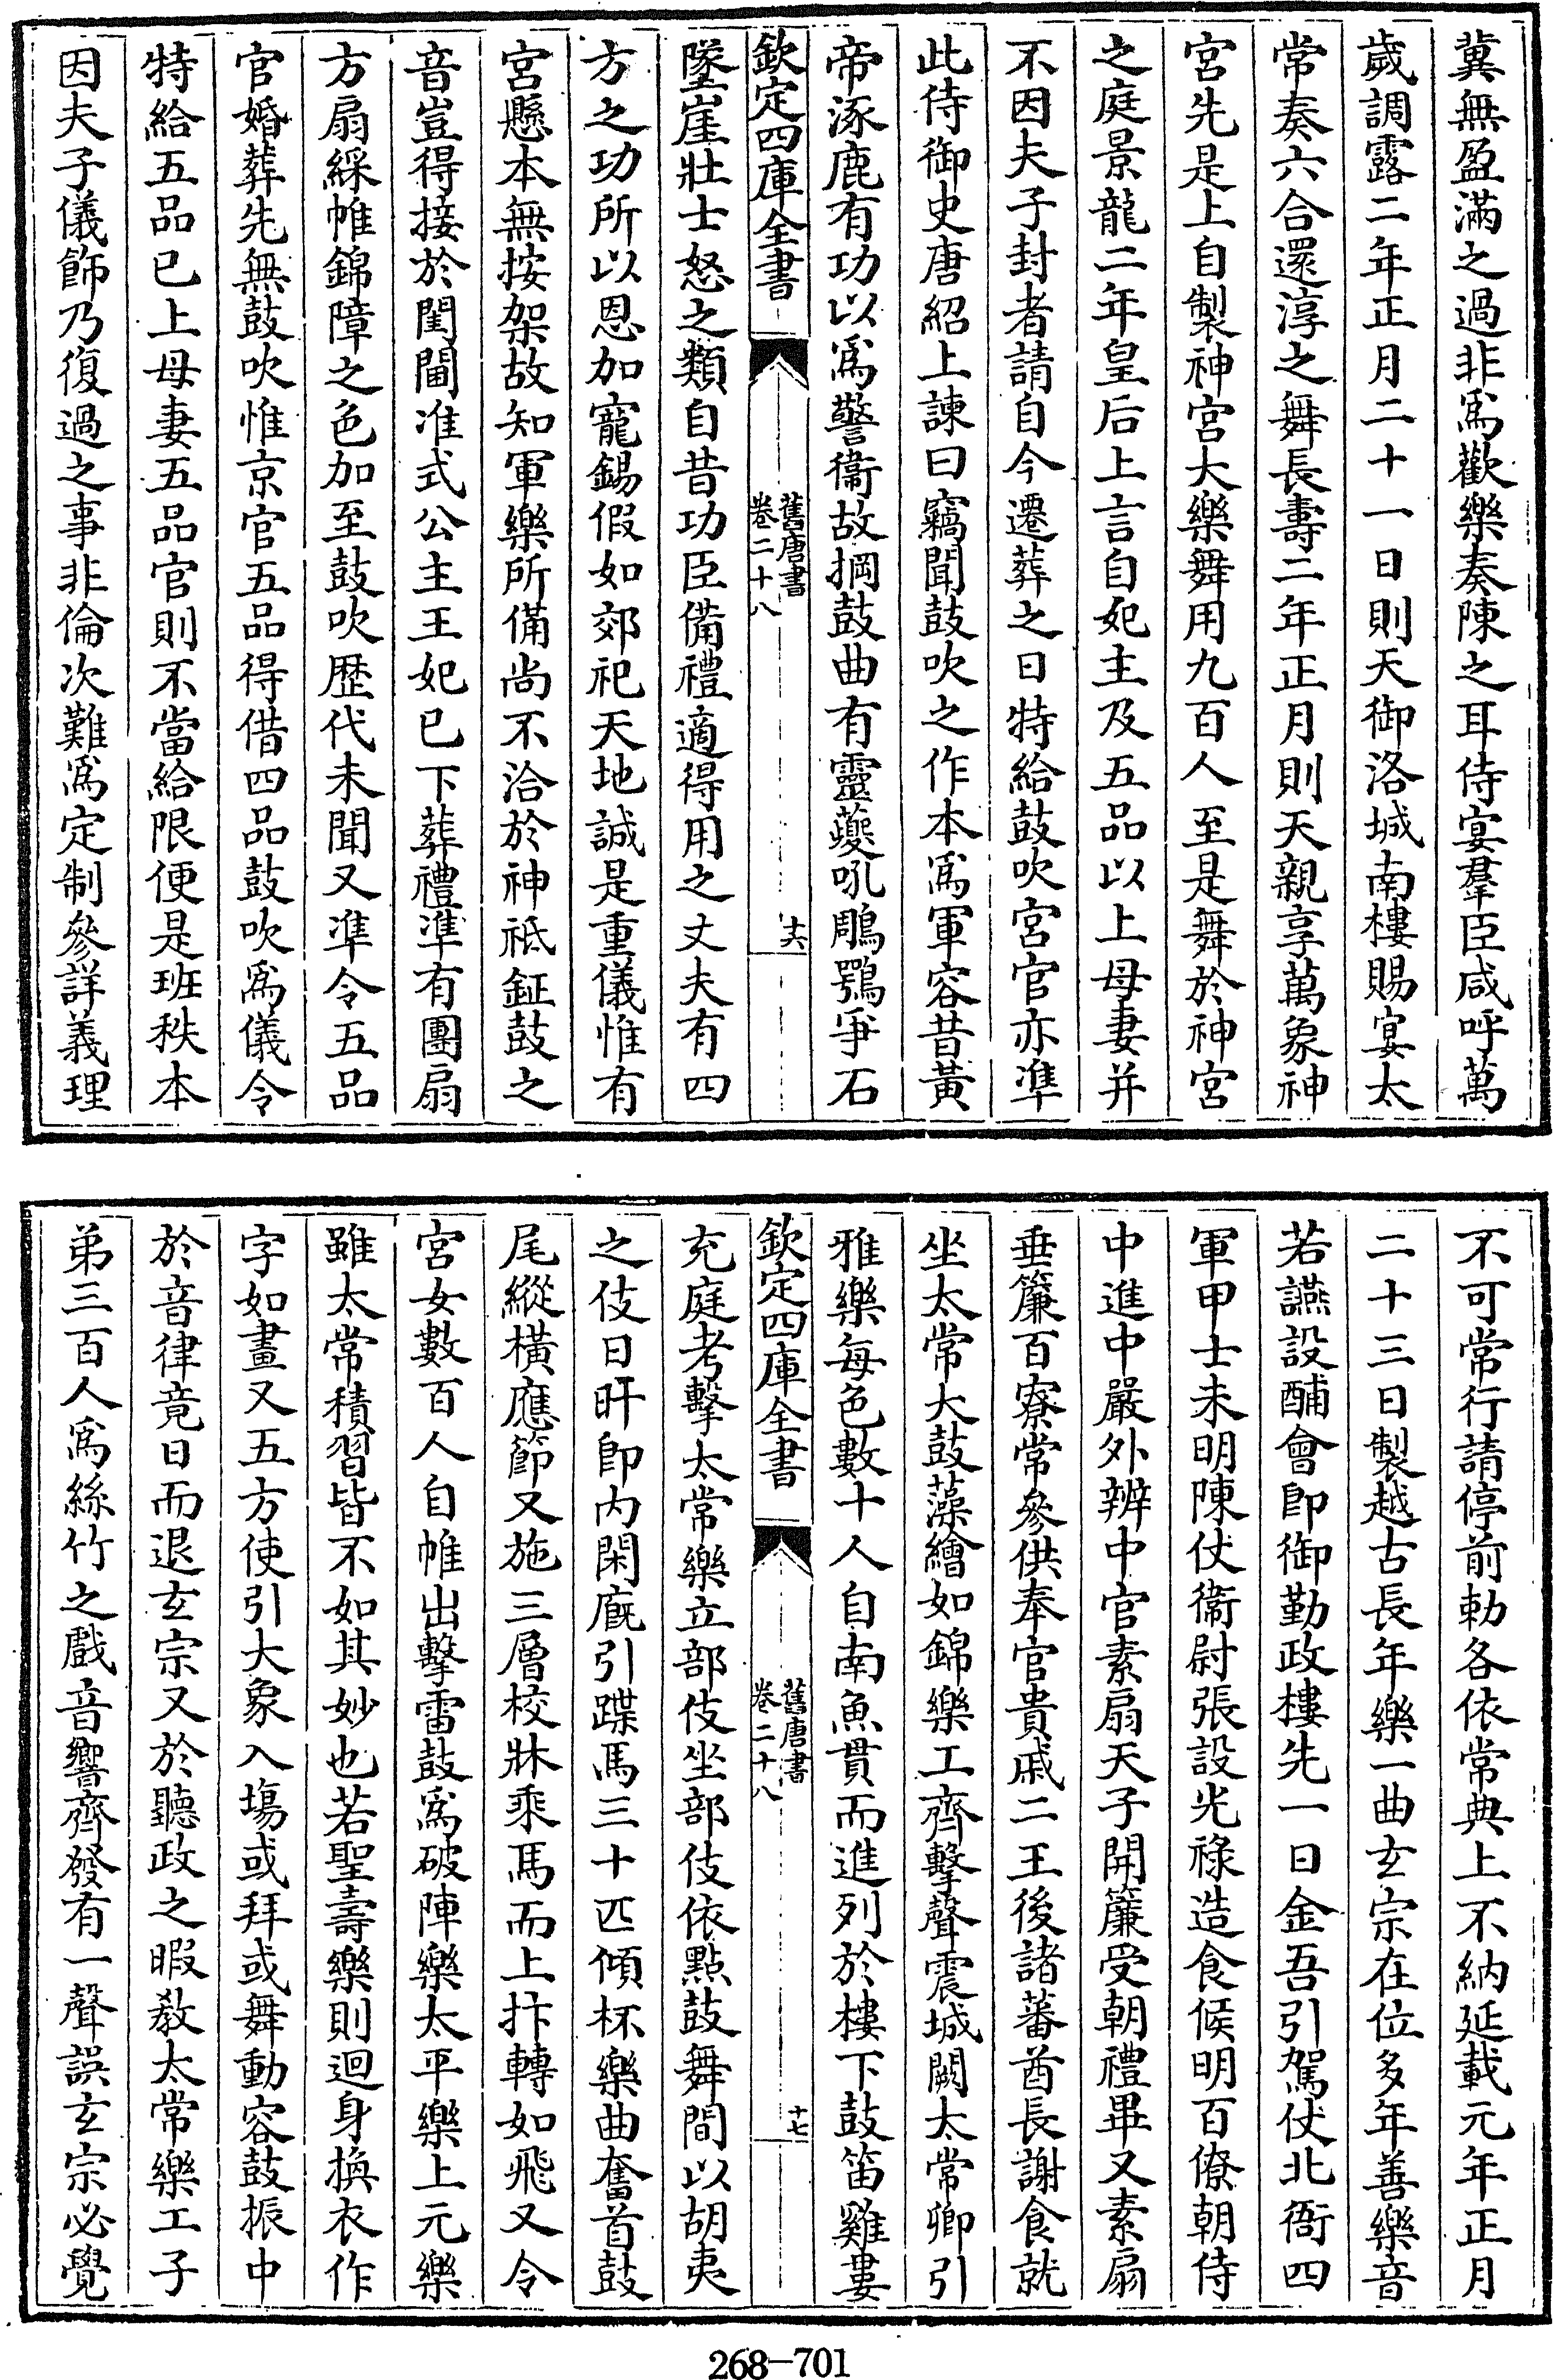 冀無盈滿之過非爲歡樂奏陳之耳侍宴羣臣咸呼萬
歲調露二年正月二十一日則天御洛城南樓賜宴太
常奏六合還淳之舞長壽二年正月則天親享萬象神
宮先是上自製神宮大樂舞用九百人至是舞於神宮
之庭景龍二年皇后上言自妃主及五品以上母妻并
不因夫子封者請自今遷葬之日特給鼓吹宮官亦準
此侍御史唐紹上諫曰竊聞鼓吹之作本爲軍容昔黃
帝涿鹿有功以爲警衞故掆鼓曲有靈夔吼鵰鶚爭石
欽定四庫全書
舊唐書
卷二十八
十六
墜崖壯士怒之類自昔功臣備禮適得用之丈夫有四
方之功所以恩加寵錫假如郊祀天地誠是重儀惟有
宮懸本無按架故知軍樂所備尚不洽於神祇鉦鼓之
音豈得接於閨閫准式公主王妃已下葬禮準有團扇
方扇綵帷錦障之色加至鼓吹歴代未聞又準令五品
官婚葬先無鼓吹惟京官五品得借四品鼓吹爲儀令
特給五品已上母妻五品官則不當給限便是班秩本
因夫子儀飾乃復過之事非倫次難爲定制參詳義理
不可常行請停前勅各依常典上不納延載元年正月
二十三日製越古長年樂一曲玄宗在位多年善樂音
若讌設酺會卽御勤政樓先一日金吾引駕仗北衙四
軍甲士未明陳仗衞尉張設光祿造食候明百僚朝侍
中進中嚴外辨中官素扇天子開簾受朝禮畢又素扇
垂簾百寮常參供奉官貴戚二王後諸蕃酋長謝食就
坐太常大鼓藻繪如錦樂工齊擊聲震城闕太常卿引
雅樂每色數十人自南魚貫而進列於樓下鼓笛雞婁
欽定四庫全書
舊唐書
卷二十八
十七
充庭考擊太常樂立部伎坐部伎依點鼓舞間以胡夷
之伎日旰卽内閑廐引蹀馬三十匹傾杯樂曲奮首鼓
尾縱橫應節又施三層校牀乘馬而上抃轉如飛又令
宮女數百人自帷出擊雷鼓爲破陣樂太平樂上元樂
雖太常積習皆不如其妙也若聖壽樂則迴身換衣作
字如畫又五方使引大象入場或拜或舞動容鼓振中
於音律竟日而退玄宗又於聽政之暇教太常樂工子
弟三百人爲絲竹之戲音響齊發有一聲誤玄宗必覺
268-701